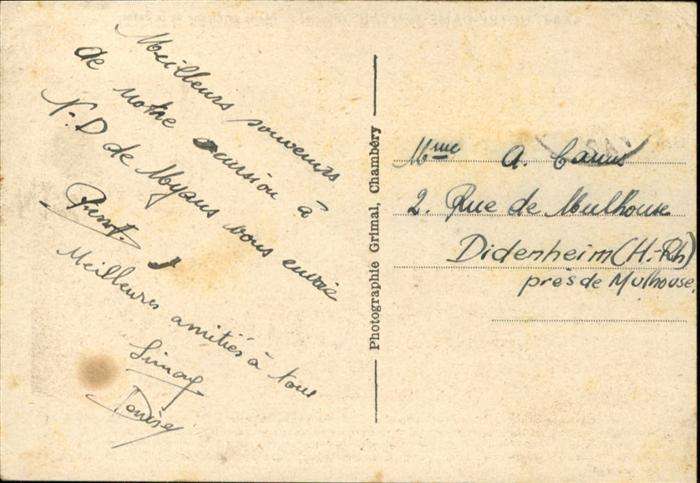 Meilleurs souvenirs
de notre excursion à
N.D de Myans vous envoie
Meilleures amitiés à tous
Simon
Denise
Photographie Grimal, Chambéry
Mme A.
2. Rue de Mulhouse
Didenheim (H.-Rh)
près de Mulhouse.